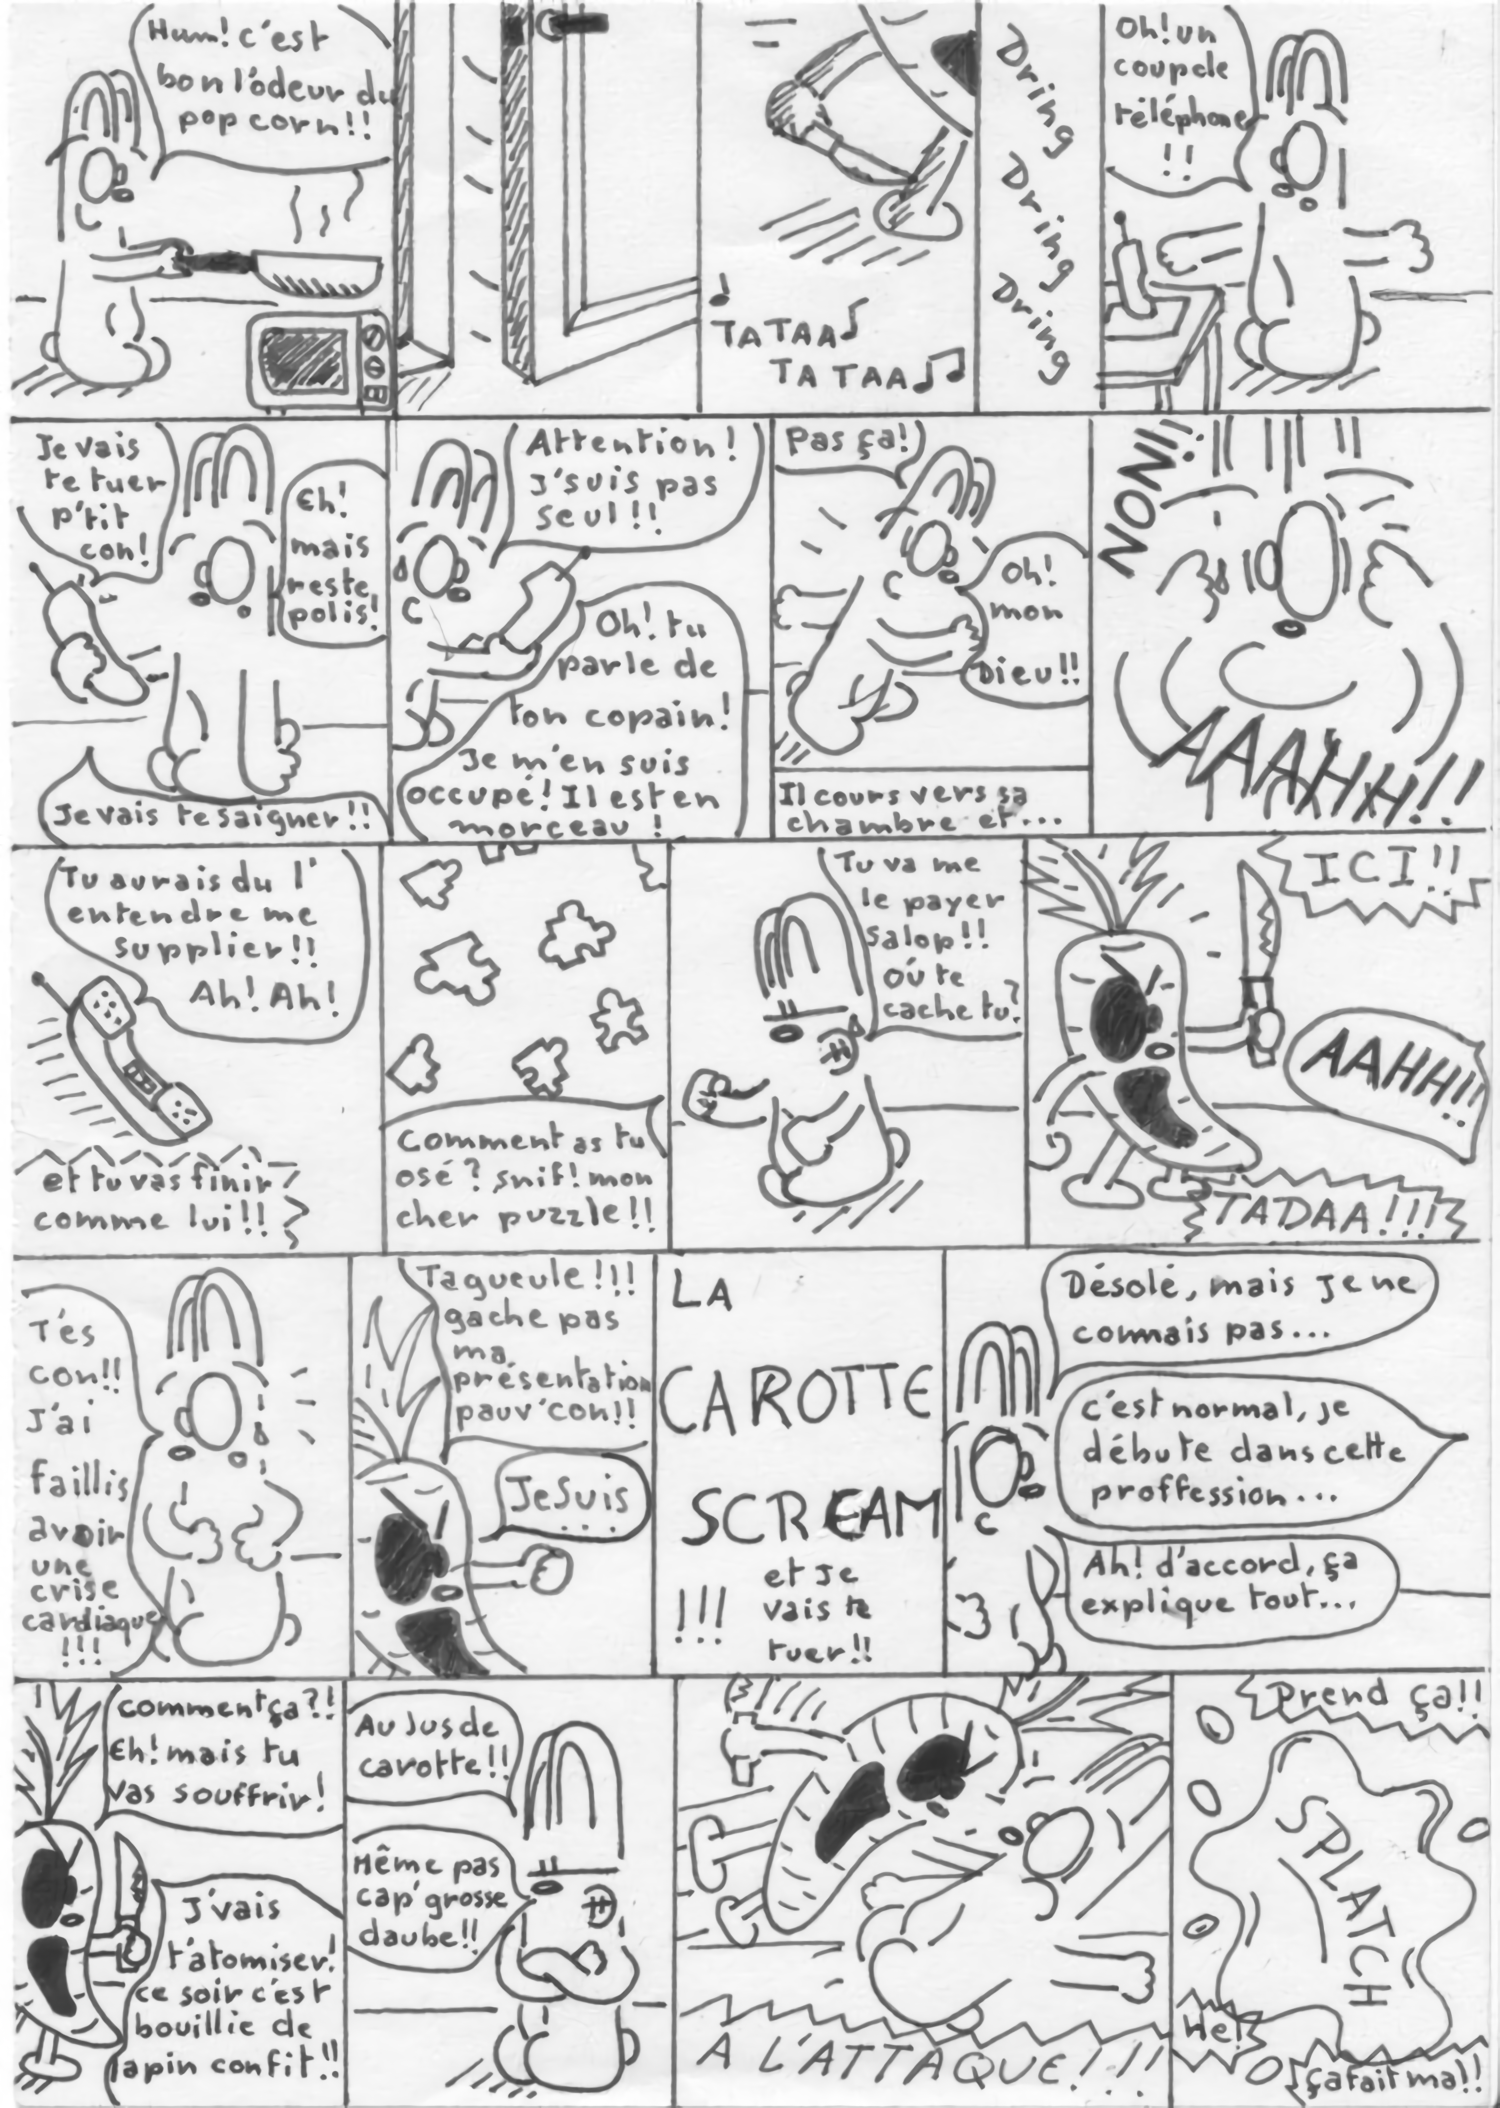 Hum! c'est
bon l'odeur du
pop corn!!
TATAA
TATAA
Dring
Dring
Dring
Oh! un
coup de
téléphone
!!
Je vais
te tuer
p'tit
con!
Eh!
mais
reste
polis!
Je vais te saigner!!
Attention!
J'suis pas
seul!!
Oh! tu
parle de
ton copain!
Je m'en suis
occupé! Il est en
morceau !
Pas ça!
Oh!
mon
Dieu!!
Il cours vers sa
chambre et...
NON!!
AAAHH!!
Tu aurais du l'
entendre me
supplier!!
Ah! Ah!
et tu vas finir
comme lui!!
Comment as tu
osé? snif! mon
cher puzzle!!
Tu va me
le payer
salop!!
où te
cache tu?
ICI!!
AAHH!!
TADAA!!!
T'es
con!!
J'ai
faillis
avoir
une
crise
cardiaque
!!!
Ta gueule!!!
gache pas
ma
présentation
pauv'con!!
Je suis
...
LA
CAROTTE
SCREAM
!!!
et je
vais te
tuer!!
Désolé, mais je ne
connais pas...
c'est normal, je
débute dans cette
proffession...
Ah! d'accord, ça
explique tout...
comment ça?!
Eh! mais tu
vas souffrir!
J'vais
t'atomiser!
ce soir c'est
bouillie de
lapin confit!!
Au Jus de
carotte!!
Même pas
cap' grosse
daube!!
A L'ATTAQUE!!!
Prend ça!!
SPLATCH
He!
ça fait ma!!